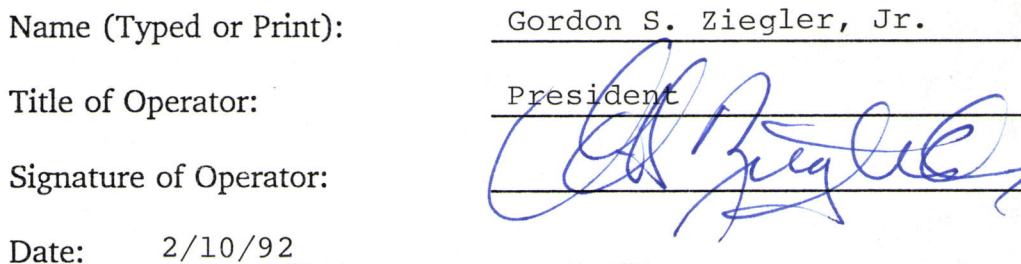 Name (Typed or Print): Gordon S. Ziegler, Jr.
Title of Operator: President
Signature of Operator:
Date: 2/10/92